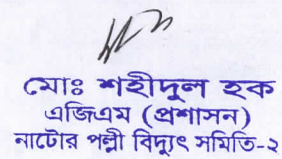 মোঃ শহীদুল হক
এজিএম (প্রশাসন)
নাটোর পল্লী বিদ্যুৎ সমিতি-২